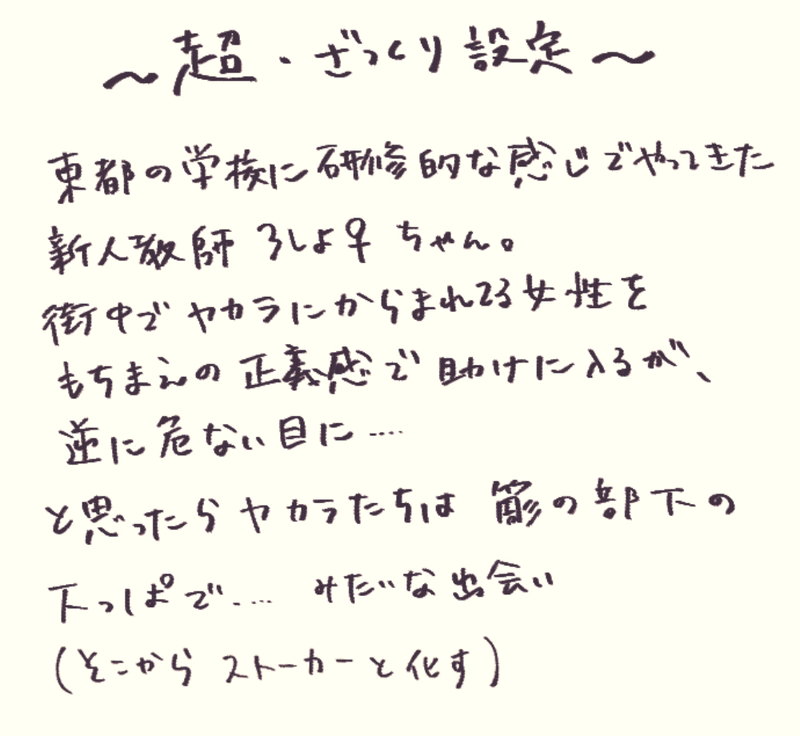 ～超・ざっくり設定～
東都の学校に研修的な感じでやってきた
新人教師 ろしよ♀ ちゃん。
街中でヤカラにからまれてる女性を
もちまえの正義感で助けに入るが、
逆に危ない目に‥‥
と思ったらヤカラたちは 簓の部下の
下っぱで‥‥ みたいな出会い
(そこからストーカーと化す)